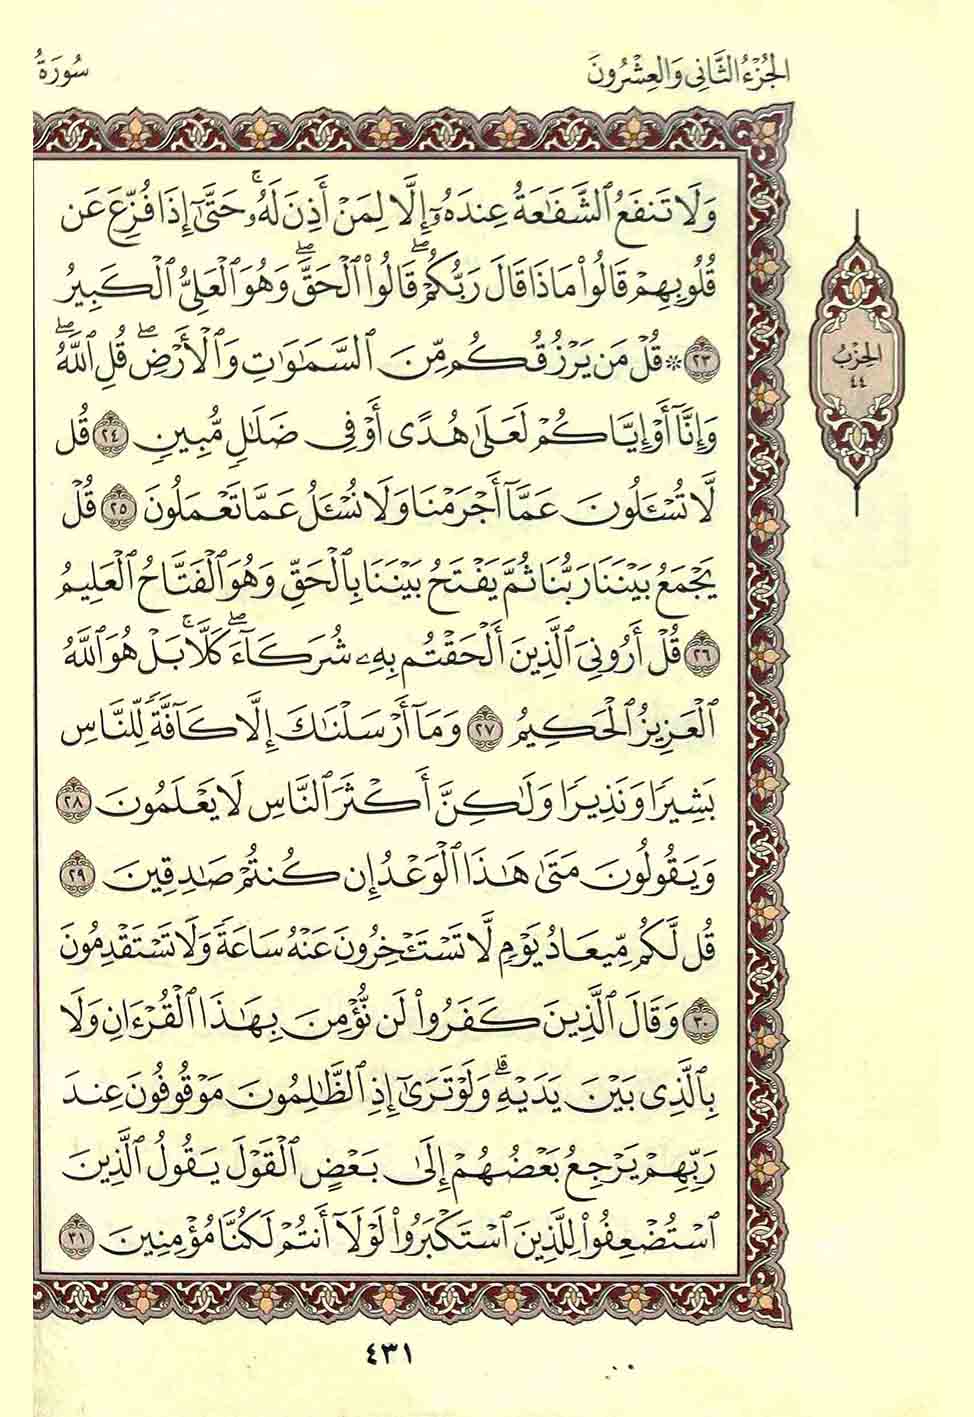 الجُزْءُ الثَّانِي وَالعِشْرُونَ
سُورَةُ
وَلَا تَنفَعُ ٱلشَّفَٰعَةُ عِندَهُۥٓ إِلَّا لِمَنْ أَذِنَ لَهُۥۚ حَتَّىٰٓ إِذَا فُزِّعَ عَن
قُلُوبِهِمْ قَالُوا۟ مَاذَا قَالَ رَبُّكُمْۖ قَالُوا۟ ٱلْحَقَّۖ وَهُوَ ٱلْعَلِىُّ ٱلْكَبِيرُ
٢٣ ۞ قُلْ مَن يَرْزُقُكُم مِّنَ ٱلسَّمَٰوَٰتِ وَٱلْأَرْضِۖ قُلِ ٱللَّهُۖ
وَإِنَّآ أَوْ إِيَّاكُمْ لَعَلَىٰ هُدًى أَوْ فِى ضَلَٰلٍ مُّبِينٍ ٢٤ قُل
لَّا تُسْـَٔلُونَ عَمَّآ أَجْرَمْنَا وَلَا نُسْـَٔلُ عَمَّا تَعْمَلُونَ ٢٥ قُلْ
يَجْمَعُ بَيْنَنَا رَبُّنَا ثُمَّ يَفْتَحُ بَيْنَنَا بِٱلْحَقِّ وَهُوَ ٱلْفَتَّاحُ ٱلْعَلِيمُ
٢٦ قُلْ أَرُونِىَ ٱلَّذِينَ أَلْحَقْتُم بِهِۦ شُرَكَآءَۖ كَلَّاۚ بَلْ هُوَ ٱللَّهُ
ٱلْعَزِيزُ ٱلْحَكِيمُ ٢٧ وَمَآ أَرْسَلْنَٰكَ إِلَّا كَآفَّةً لِّلنَّاسِ
بَشِيرًا وَنَذِيرًا وَلَٰكِنَّ أَكْثَرَ ٱلنَّاسِ لَا يَعْلَمُونَ ٢٨
وَيَقُولُونَ مَتَىٰ هَٰذَا ٱلْوَعْدُ إِن كُنتُمْ صَٰدِقِينَ ٢٩
قُل لَّكُم مِّيعَادُ يَوْمٍ لَّا تَسْتَـْٔخِرُونَ عَنْهُ سَاعَةً وَلَا تَسْتَقْدِمُونَ
٣٠ وَقَالَ ٱلَّذِينَ كَفَرُوا۟ لَن نُّؤْمِنَ بِهَٰذَا ٱلْقُرْءَانِ وَلَا
بِٱلَّذِى بَيْنَ يَدَيْهِۗ وَلَوْ تَرَىٰٓ إِذِ ٱلظَّٰلِمُونَ مَوْقُوفُونَ عِندَ
رَبِّهِمْ يَرْجِعُ بَعْضُهُمْ إِلَىٰ بَعْضٍ ٱلْقَوْلَ يَقُولُ ٱلَّذِينَ
ٱسْتُضْعِفُوا۟ لِلَّذِينَ ٱسْتَكْبَرُوا۟ لَوْلَآ أَنتُمْ لَكُنَّا مُؤْمِنِينَ ٣١
الحِزْبُ
٤٤
٤٣١